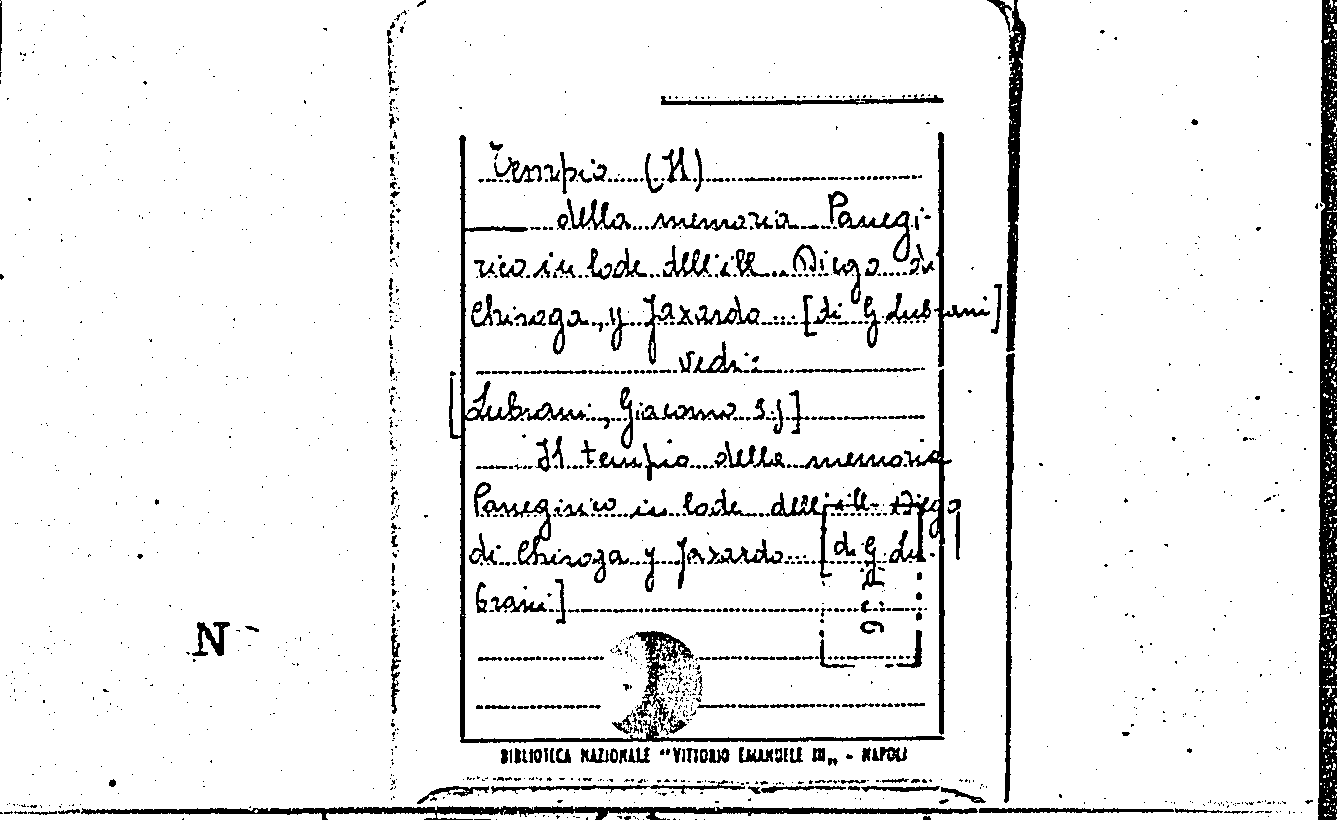 Tempio (Il)
della memoria Panegi-
rico in lode dell'ill... Diego di
Chiroga, y Faxardo... [di G. Lubrani]
vedi:
[Lubrani, Giacomo S.J]
Il tempio della memoria
Panegirico in lode dell'ill... Diego
di Chiroga y Faxardo... [di G. Lu-
brani]
N
BIBLIOTECA NAZIONALE "VITTORIO EMANUELE III„ - NAPOLI